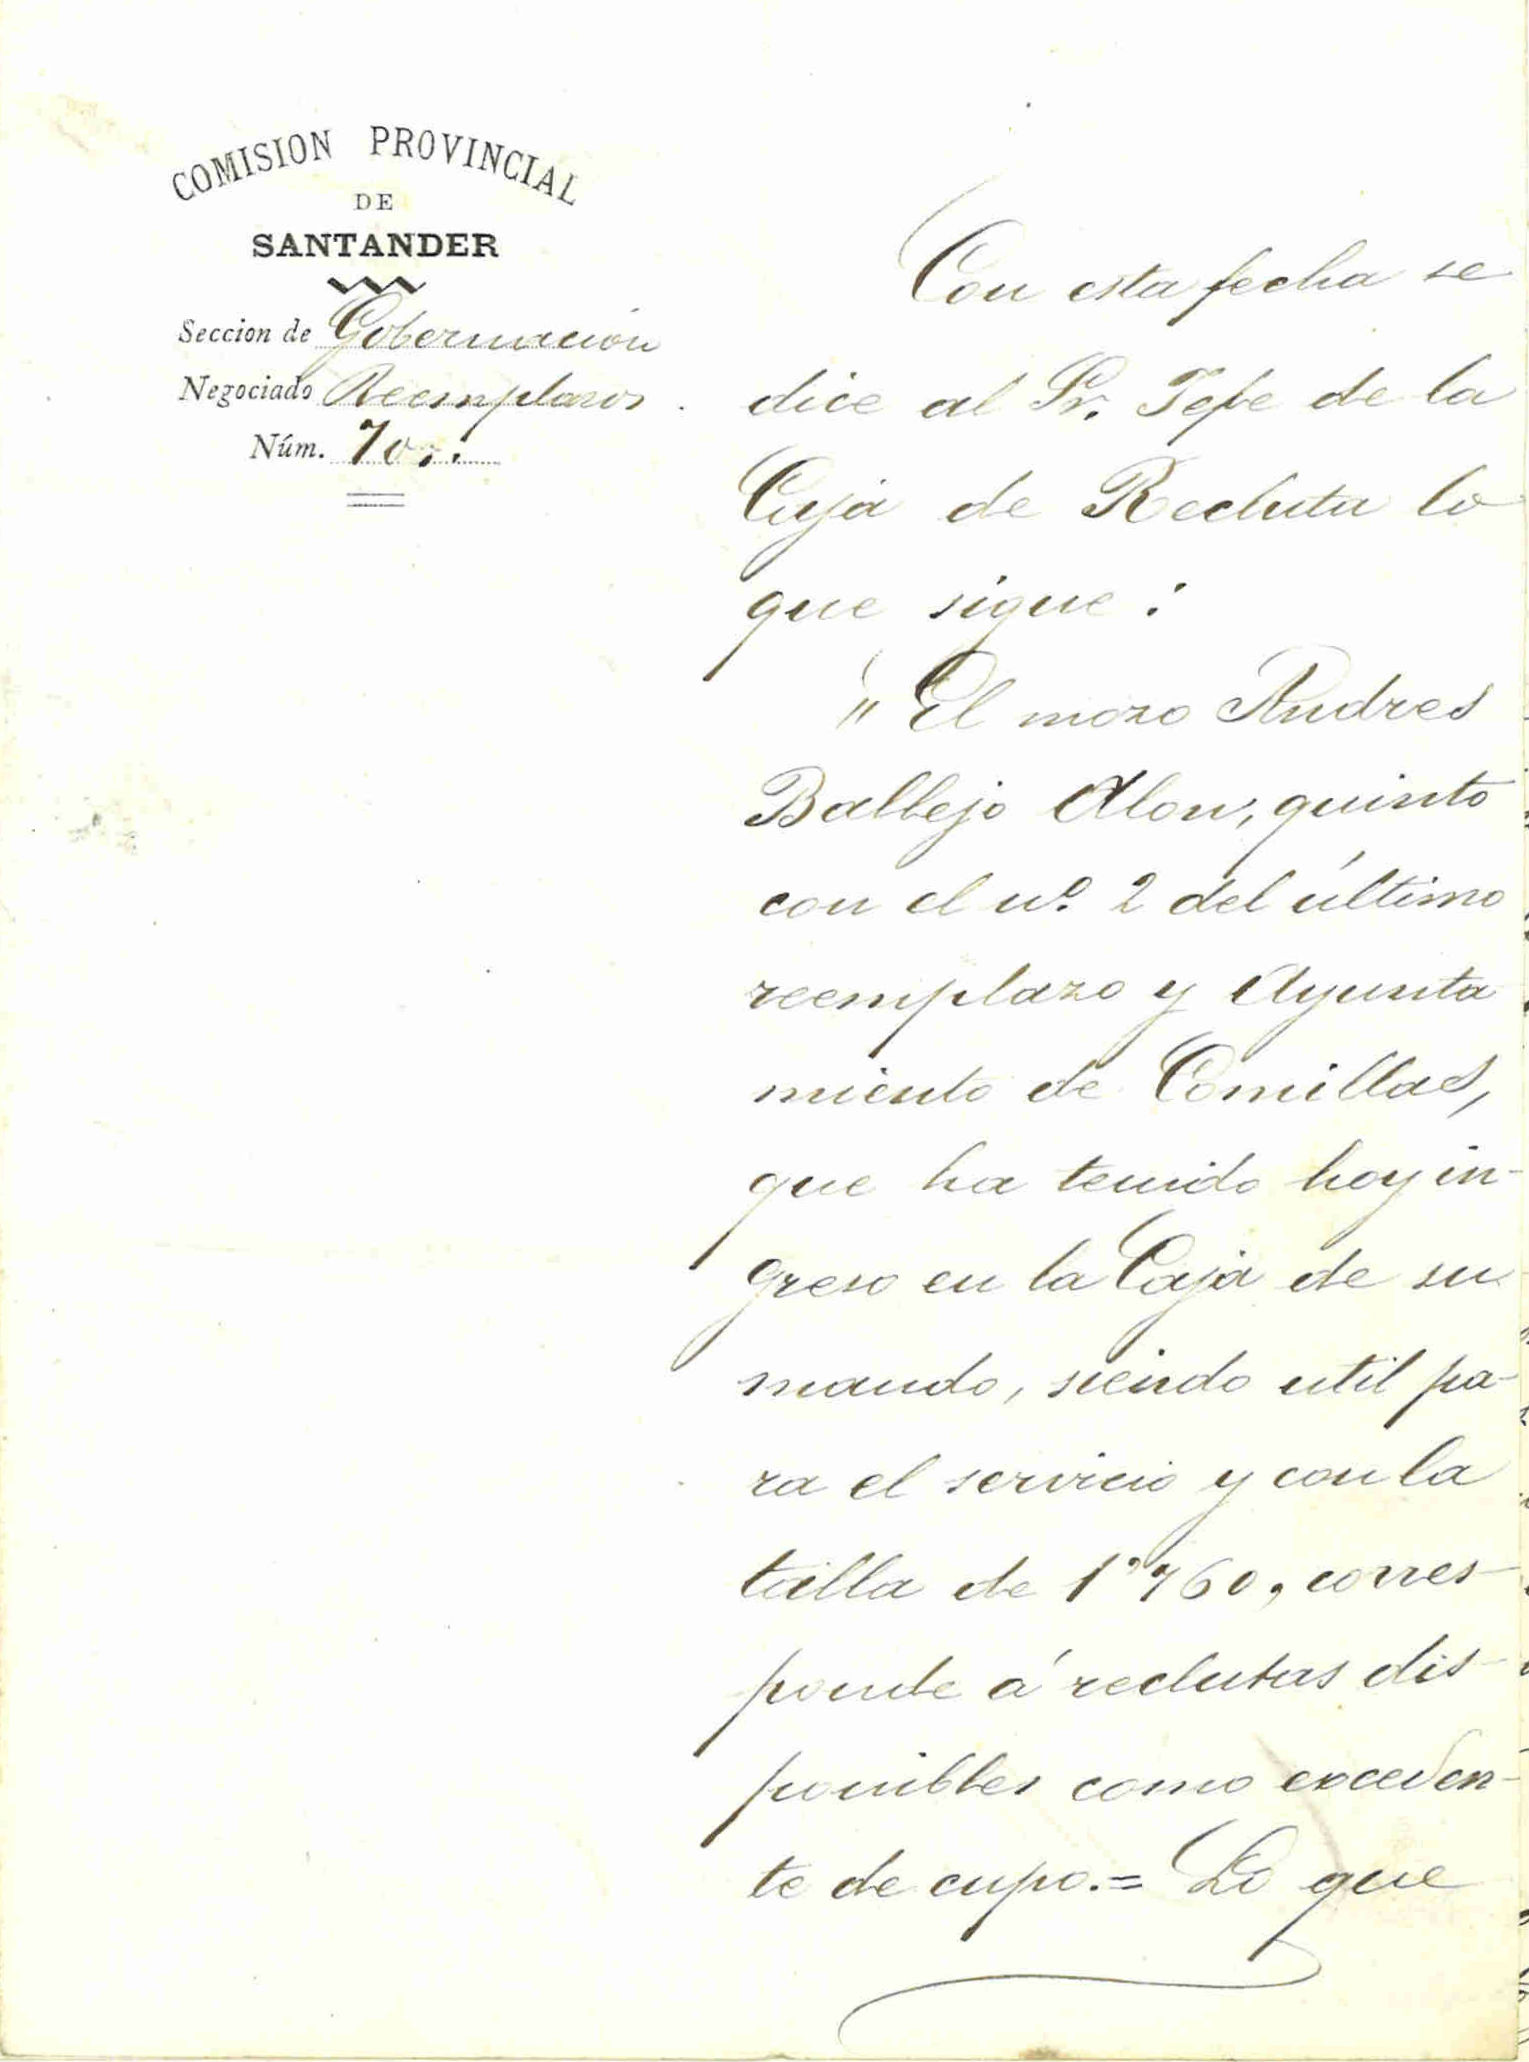 COMISION PROVINCIAL
DE
SANTANDER
Seccion de Gobernación
Negociado Reemplazos
Núm. 70
Con esta fecha se
dice al Sr. Jefe de la
Caja de Recluta lo
que sigue:
"El mozo Andres
Ballejo Alon, quinto
con el nº 2 del último
reemplazo y Ayunta
miento de Comillas,
que ha tenido hoy in-
greso en la Caja de su
mando, siendo util pa-
ra el servicio y con la
talla de 1'760, corres-
ponde á reclutas dis-
ponibles como exceden-
te de cupo.= Lo que